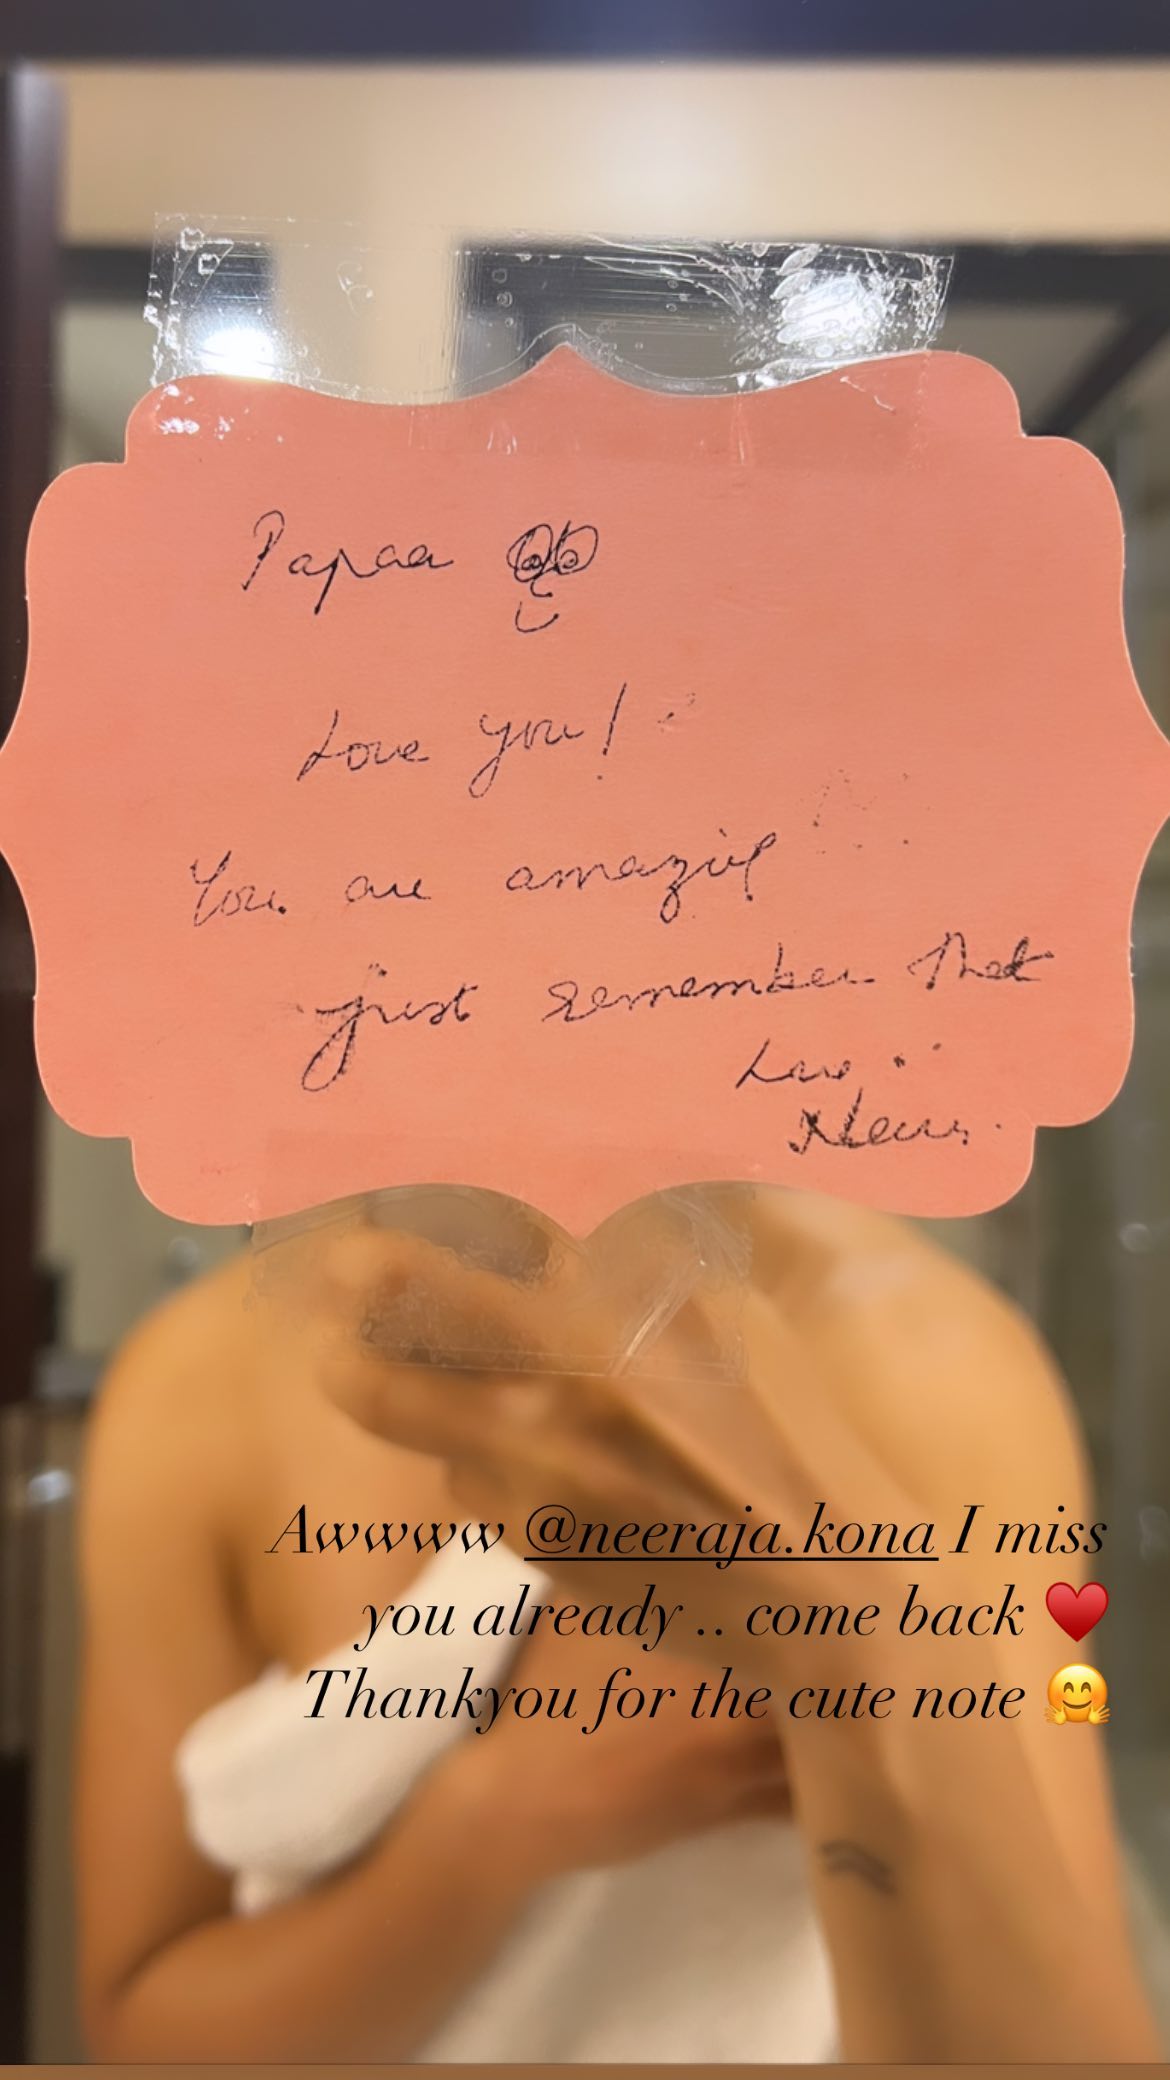 Papaa
Love you!
You are amazing
just remember that
Love
Awwww @neeraja.kona I miss
you already .. come back ♥️
Thankyou for the cute note 🤗